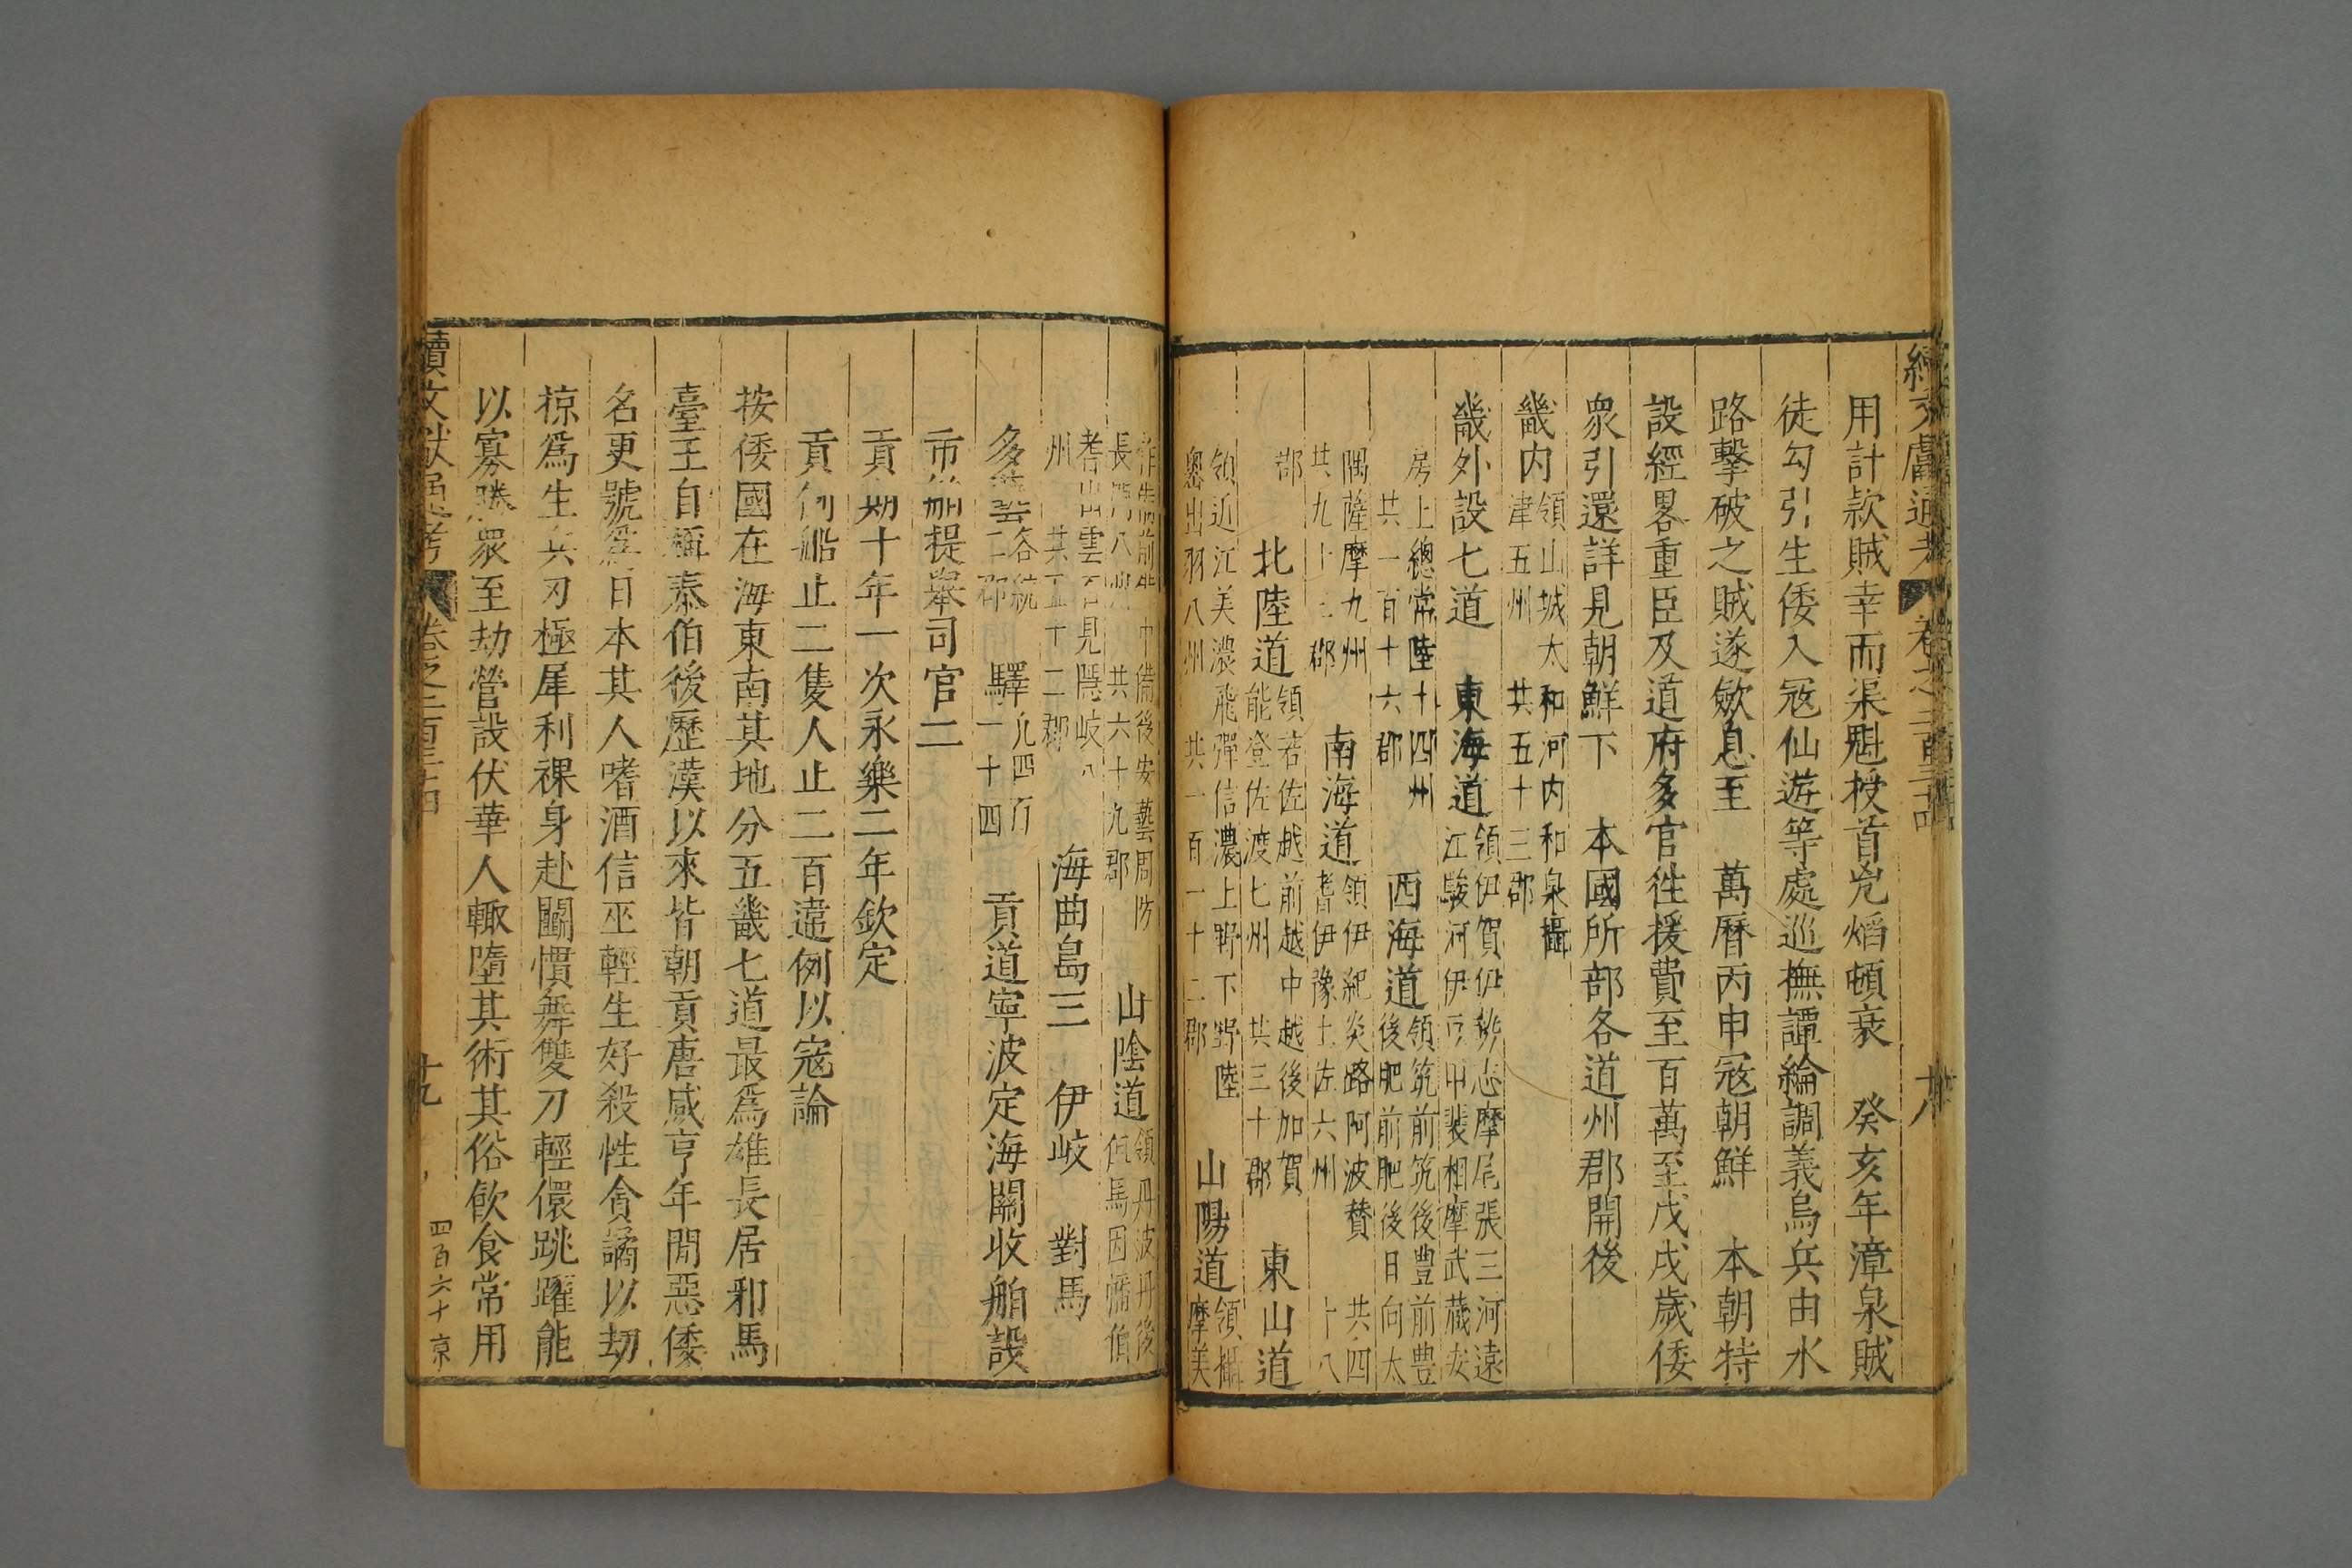 用計款賊幸而渠魁授首兇焰頓衰　癸亥年漳泉賊
徒勾引生倭入寇仙遊等處巡撫譚綸調義烏兵由水
路擊破之賊遂歛息至　萬曆丙申寇朝鮮　本朝特
設經畧重臣及道府多官徃援費至百萬至戊戌歲倭
衆引還詳見朝鮮下　本國所部各道州郡開後
畿內
領山城太和河內和泉攝
津五州　共五十三郡
畿外設七道　東海道
領伊賀伊勢志摩尾張三河遠
江駿河伊豆甲裴相摩武蔵安
房上總常陸十四州
共一百十六郡
西海道
領筑前筑後豊前豊
後肥前肥後日向太
隅薩摩九州
共九十三郡
南海道
領伊紀炎路阿波賛
耆伊豫土佐六州
共四
十八
郡
北陸道
領若佐越前越中越後加賀
能登佐渡七州　共三十郡
東山道
領近江美濃飛彈信濃上野下野陸
奥出羽八州　共一百一十二郡
山陽道
領攝
摩美
作備前備中備後安藝周防
長門八州　共六十九郡
山陰道
領丹波丹後
但馬因幡伯
耆出雲石見隱岐八
州　共五十二郡
海曲島三　伊岐　對馬
多藝
各統
二郡
驛
凡四百
一十四
貢道寧波定海關收舶設
市舶提舉司官二
貢期十年一次永樂二年欽定
貢例船止二隻人止二百違例以寇論
按倭國在海東南其地分五畿七道最爲雄長居邪馬
臺王自稱泰伯後歷漢以來皆朝貢唐咸亨年間惡倭
名更號爲日本其人嗜酒信巫輕生好殺性貪譎以刼
掠爲生兵刃極犀利裸身赴鬭慣舞雙刀輕儇跳躍能
以寡勝衆至劫營設伏華人輙墮其術其俗飲食常用
續文獻通考　卷之二百三十四　十九　四百六十　京